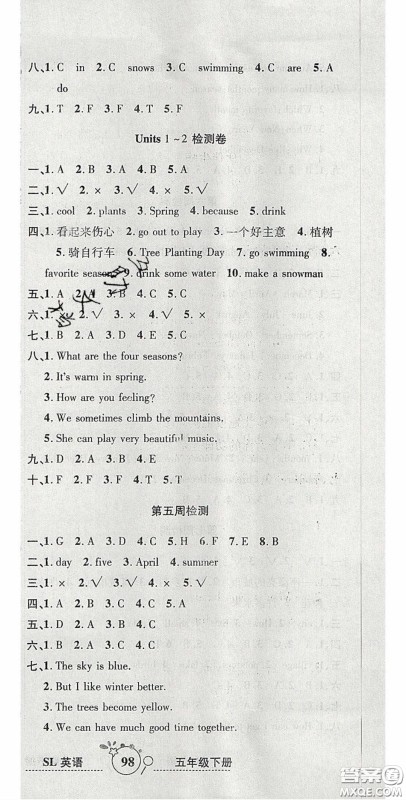 八、1. C in 2. C snows 3. C swimming 4. C are 5. A
do
九、1. T 2. F 3. F 4. T 5. F
Units 1~2 检测卷
一、1. A 2. B 3. A 4. B 5. A
二、1. √ 2. × 3. × 4. √ 5. √
三、1. cool 2. plants 3. Spring 4. because 5. drink
四、1. 看起来伤心 2. go out to play 3. 一个好主意 4. 植树
5. 骑自行车 6. Tree Planting Day 7. go swimming 8.
favorite season 9. drink some water 10. make a snowman
五、1. A 2. A 3. B 4. C 5. B
六、1. 2. √ 3. √ 4. × 5. ×
七、1. B 2. D 3. A 4. E 5. C
八、1. What are the four seasons?
2. It's warm in spring.
3. How are you feeling?
4. We sometimes climb the mountains.
5. She can play very beautiful music.
九、1. D 2. A 3. B 4. E 5. C
十、1. F 2. F 3. T 4. F 5. T
第五周检测
一、1. G 2. A 3. D 4. C 5. H 6. F 7. E 8. B
二、1. day 2. five 3. April 4. summer
三、1. × 2. √ 3. √ 4. × 5. √
四、1. A 2. B 3. C 4. C 5. A
五、1. D 2. A 3. B 4. E 5. C
六、1. C 2. B 3. A 4. A 5. B
七、1. The sky is blue.
2. But I like winter better.
3. The trees become yellow.
4. We can have much good time together.
SL 英语 98 五年级下册